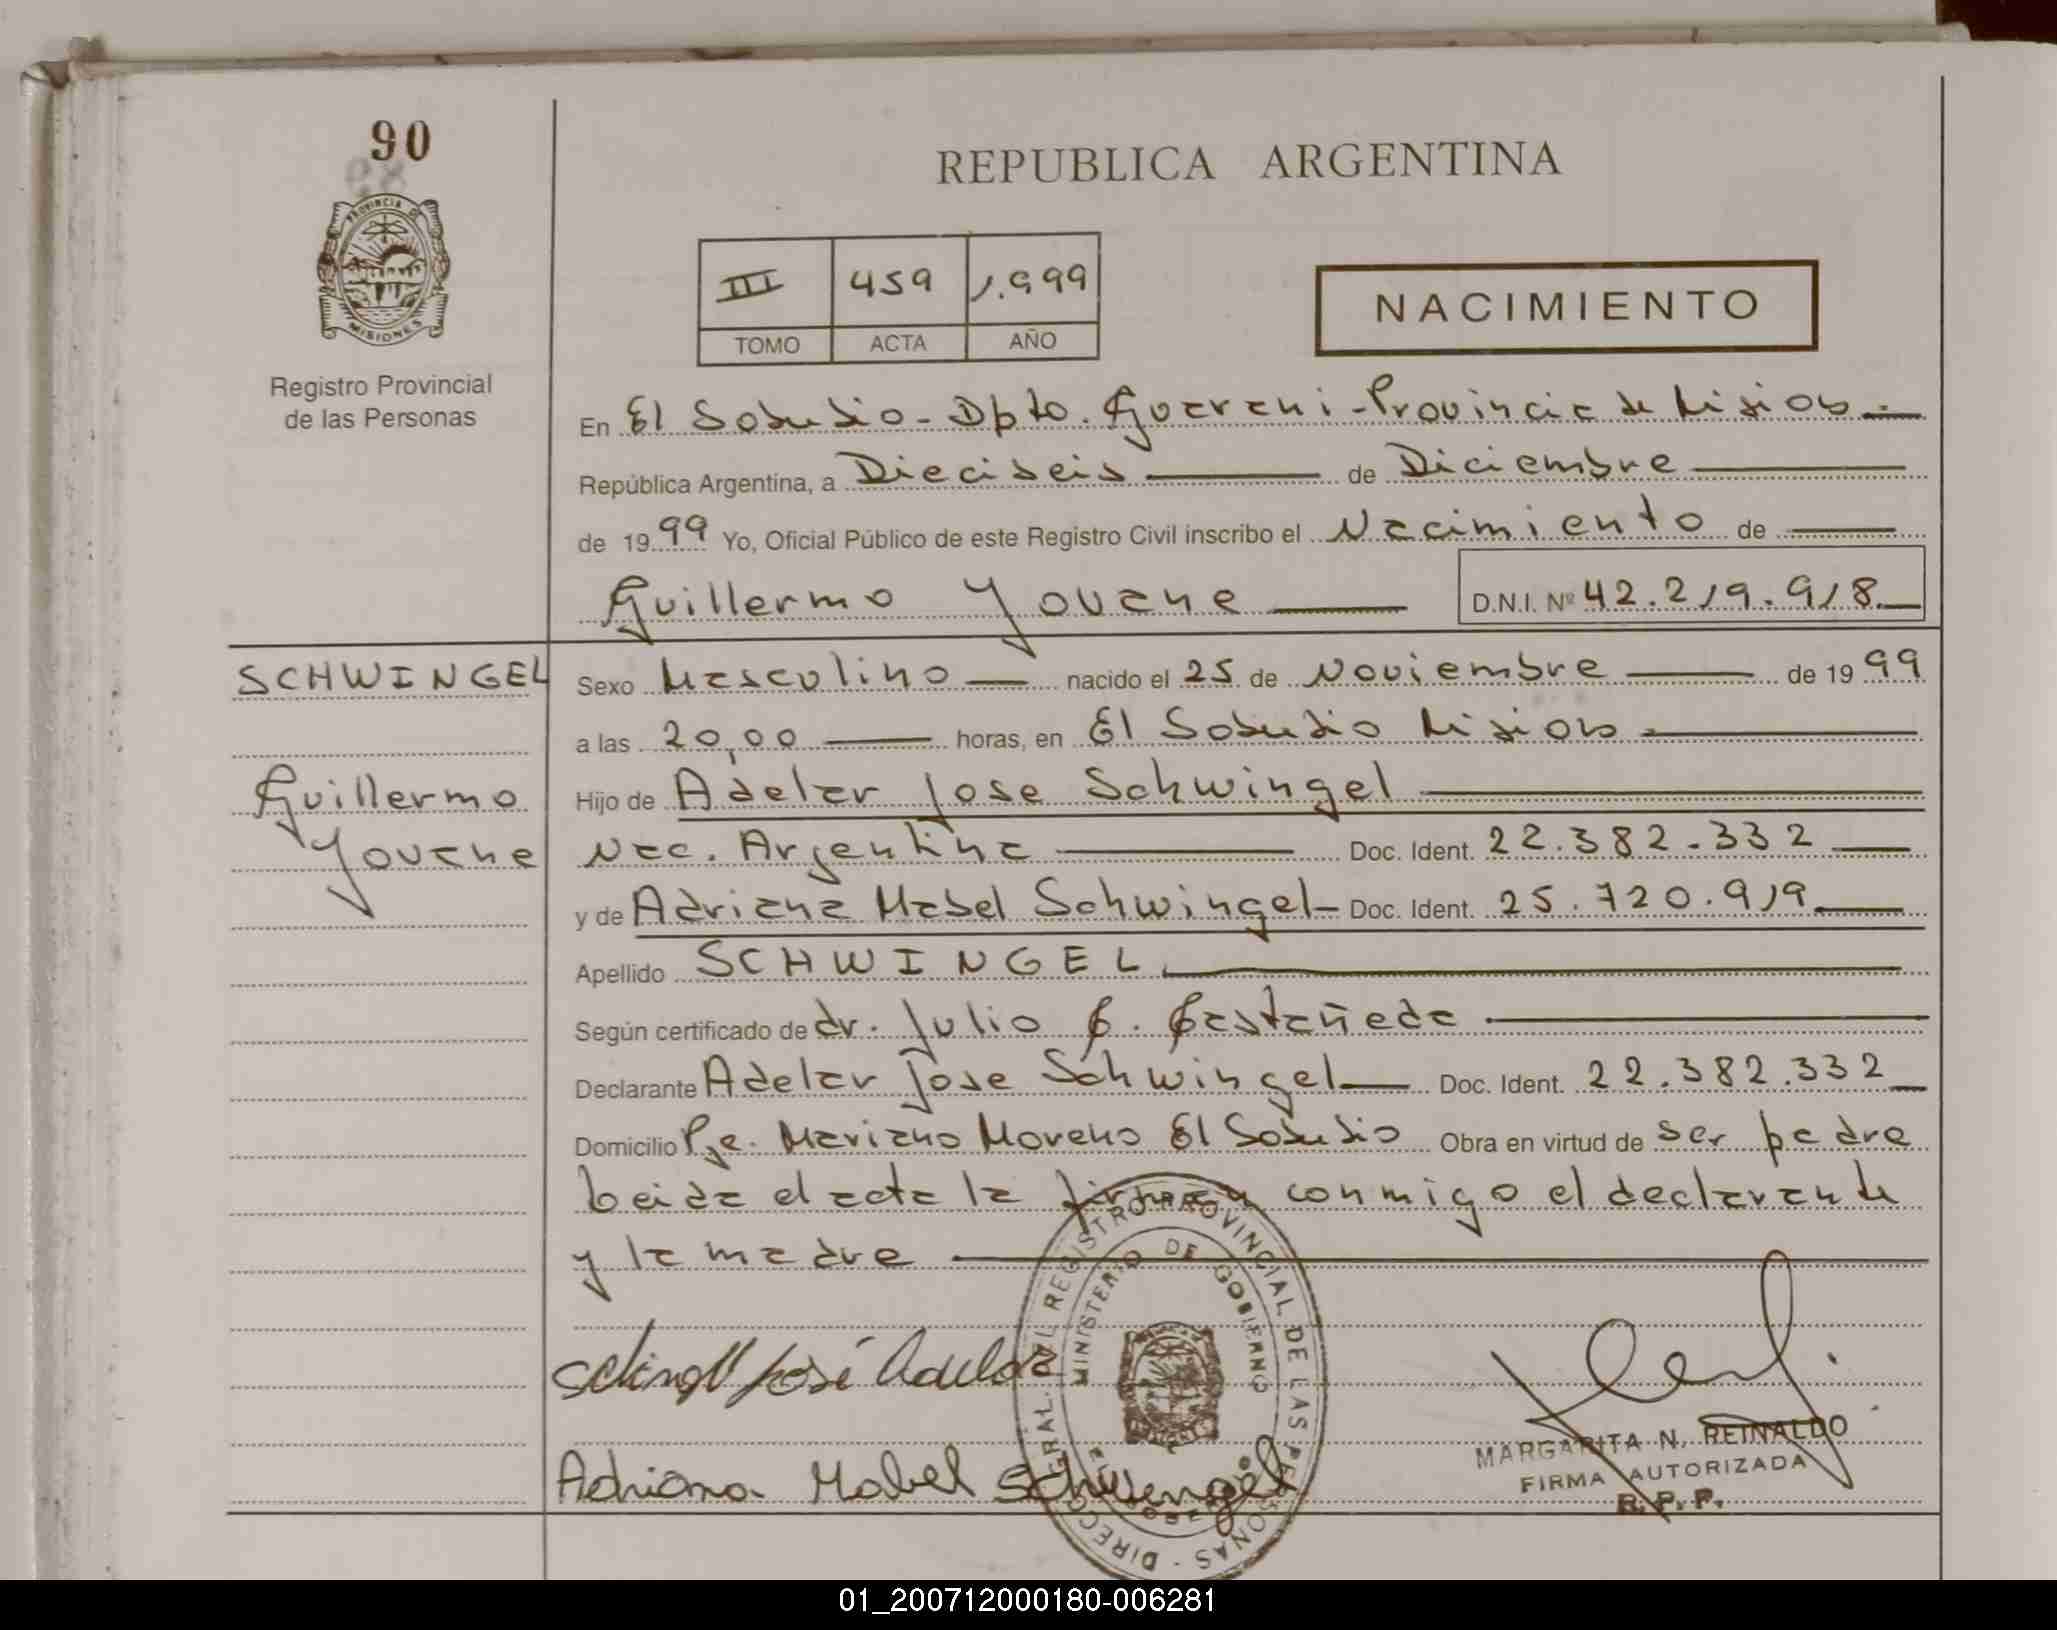 90
PROVINCIA DE
MISIONES
Registro Provincial
de las Personas
REPUBLICA ARGENTINA
III 459 1.999
TOMO ACTA AÑO
NACIMIENTO
En El Soberbio - Dpto. Guarani - Provincia de Misiones
República Argentina, a Dieciseis de Diciembre
de 1999 Yo, Oficial Público de este Registro Civil inscribo el Nacimiento de
Guillermo Yovane D.N.I. Nº 42.219.918
SCHWINGEL
Guillermo
Yovane
Sexo Masculino nacido el 25 de Noviembre de 1999
a las 20,00 horas, en El Soberbio Misiones
Hijo de Adelar Jose Schwingel
Nac. Argentina Doc. Ident. 22.382.332
y de Adriana Mabel Schwingel Doc. Ident. 25.720.919
Apellido SCHWINGEL
Según certificado de dr. Julio C. Castañeda
Declarante Adelar Jose Schwingel Doc. Ident. 22.382.332
Domicilio Pje. Mariano Moreno El Soberbio Obra en virtud de ser padre
Leida el acta la firman conmigo el declarante
y la madre
José Adelar
Adriana Mabel Schwengel
REGISTRO PROVINCIAL DE LAS PERSONAS
MINISTERIO DE GOBIERNO
MARGARITA N. REINALDO
FIRMA AUTORIZADA
R. P. P.
01_200712000180-006281